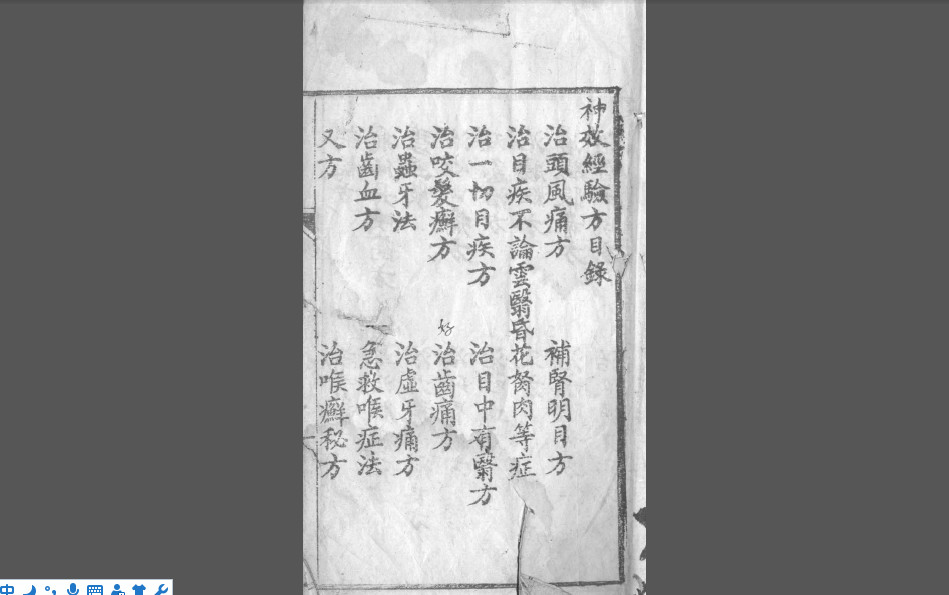 神效經驗方目錄
治頭風痛方
補腎明目方
治目疾不論雲翳昏花努肉等症
治一切目疾方
治目中有翳方
治咬髮癬方
好
治齒痛方
治蟲牙法
治虛牙痛方
治齒血方
急救喉症法
又方
治喉癬秘方
中